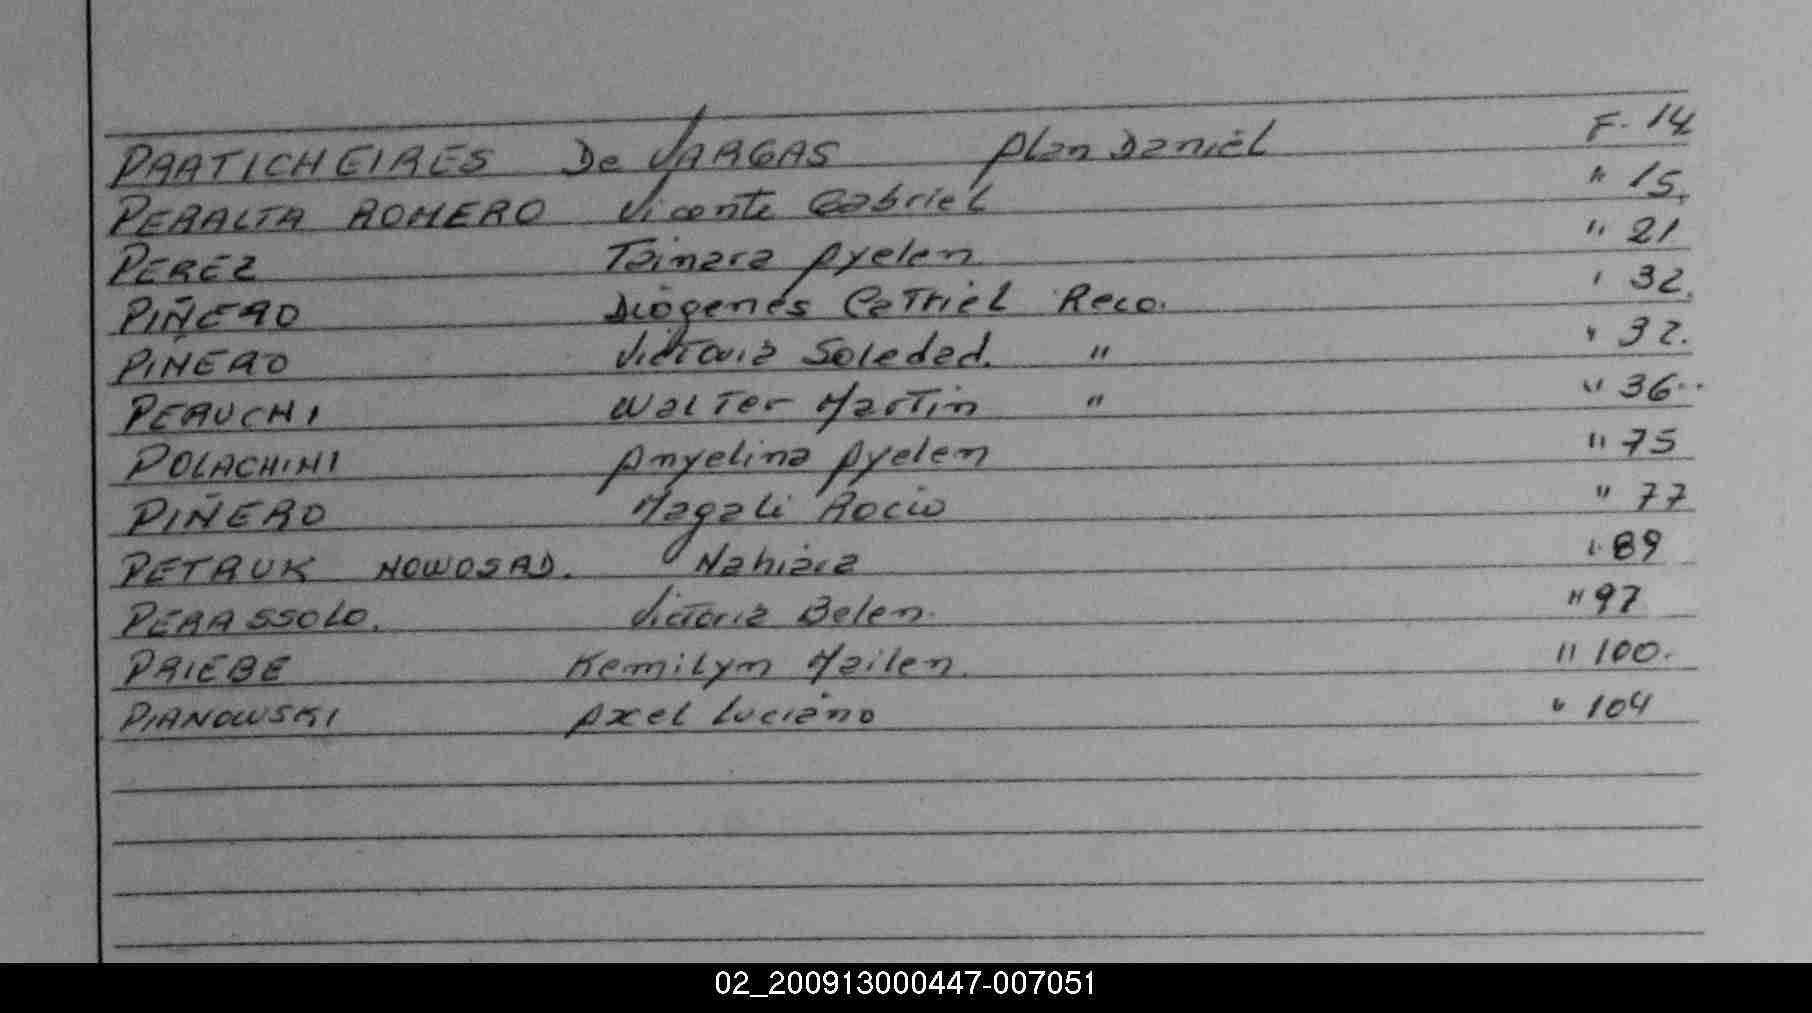 PRATICHEIRES De VARGAS Alan Daniel F. 14
PERALTA ROMERO Vicente Gabriel " 15.
PEREZ Tainara Ayelen " 21
PIÑERO Diogenes Catriel Reco. " 32.
PIÑERO Victoria Soledad. " " 32.
PERUCHI Walter Martin " " 36..
POLACHINI Anyelina Ayelen " 75
PIÑERO Magali Rocio " 77
PETRUK NOWOSAD. Nahiara " 89
PERASSOLO. Victoria Belen. " 97
PRIEBE Kemilyn Mailen. " 100.
PIANOWSKI Axel Luciano " 104
02_200913000447-007051